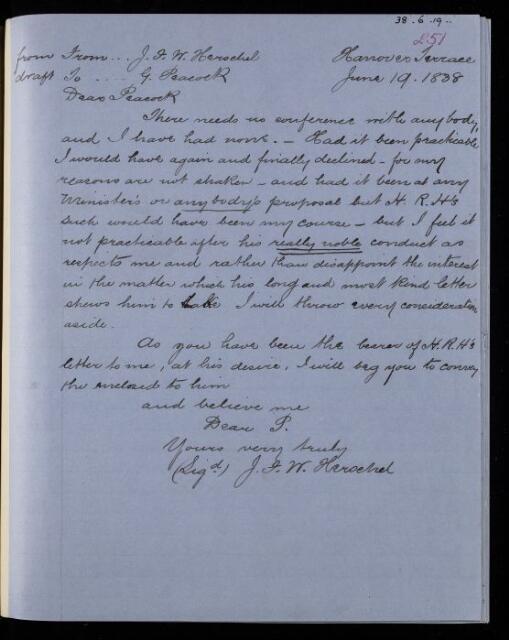 38.6.19..
251
from From... J. F. W. Herschel Hanover Terrace
draft To .... G. Peacock June 19. 1838
Dear Peacock
There needs no conference with anybody,
and I have had none. – Had it been practicable
I would have again and finally declined – for my
reasons are not shaken – and had it been at any
Minister's or anybody's proposal but H. R. H's
such would have been my course – but I feel it
not practicable after his really noble conduct as
respects me and rather than disappoint the interest
in the matter which his long and most kind letter
shews him to take I will throw every consideration
aside.
As you have been the bearer of H. R. H's
letter to me, at his desire, I will beg you to convey
the enclosed to him
and believe me
Dear P.
Yours very truly
(Sigd.) J. F. W. Herschel